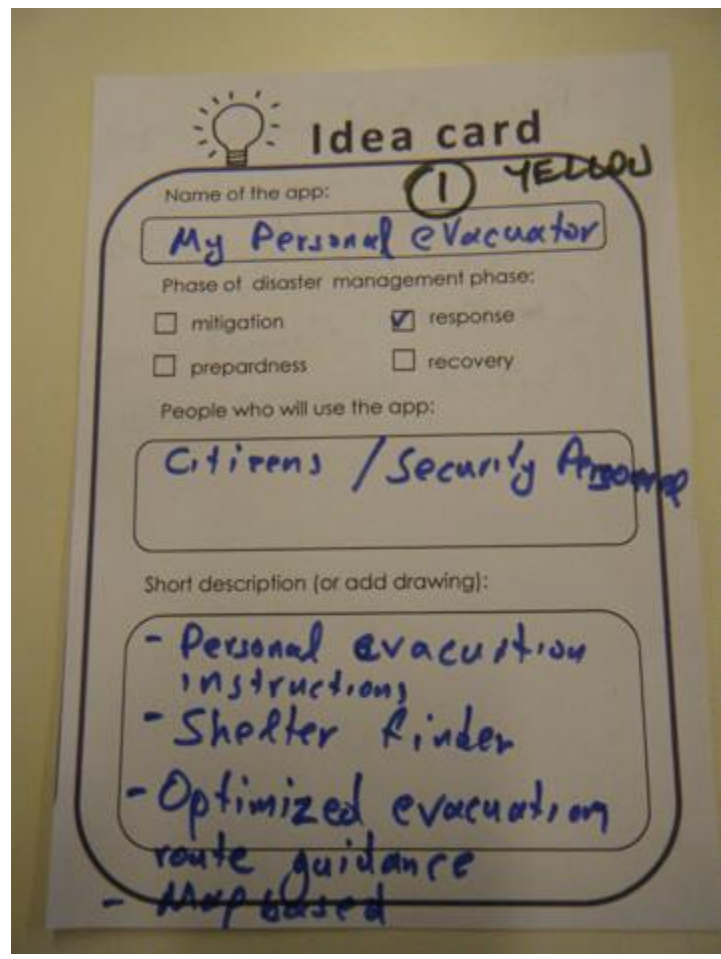 Idea card
1 YELLOW
Name of the app:
My Personal evacuator
Phase of disaster management phase:
mitigation
response
prepardness
recovery
People who will use the app:
Citizens / Security Personnel
Short description (or add drawing):
- Personal evacuation
instructions
- Shelter finder
- Optimized evacuation
route guidance
- Map based